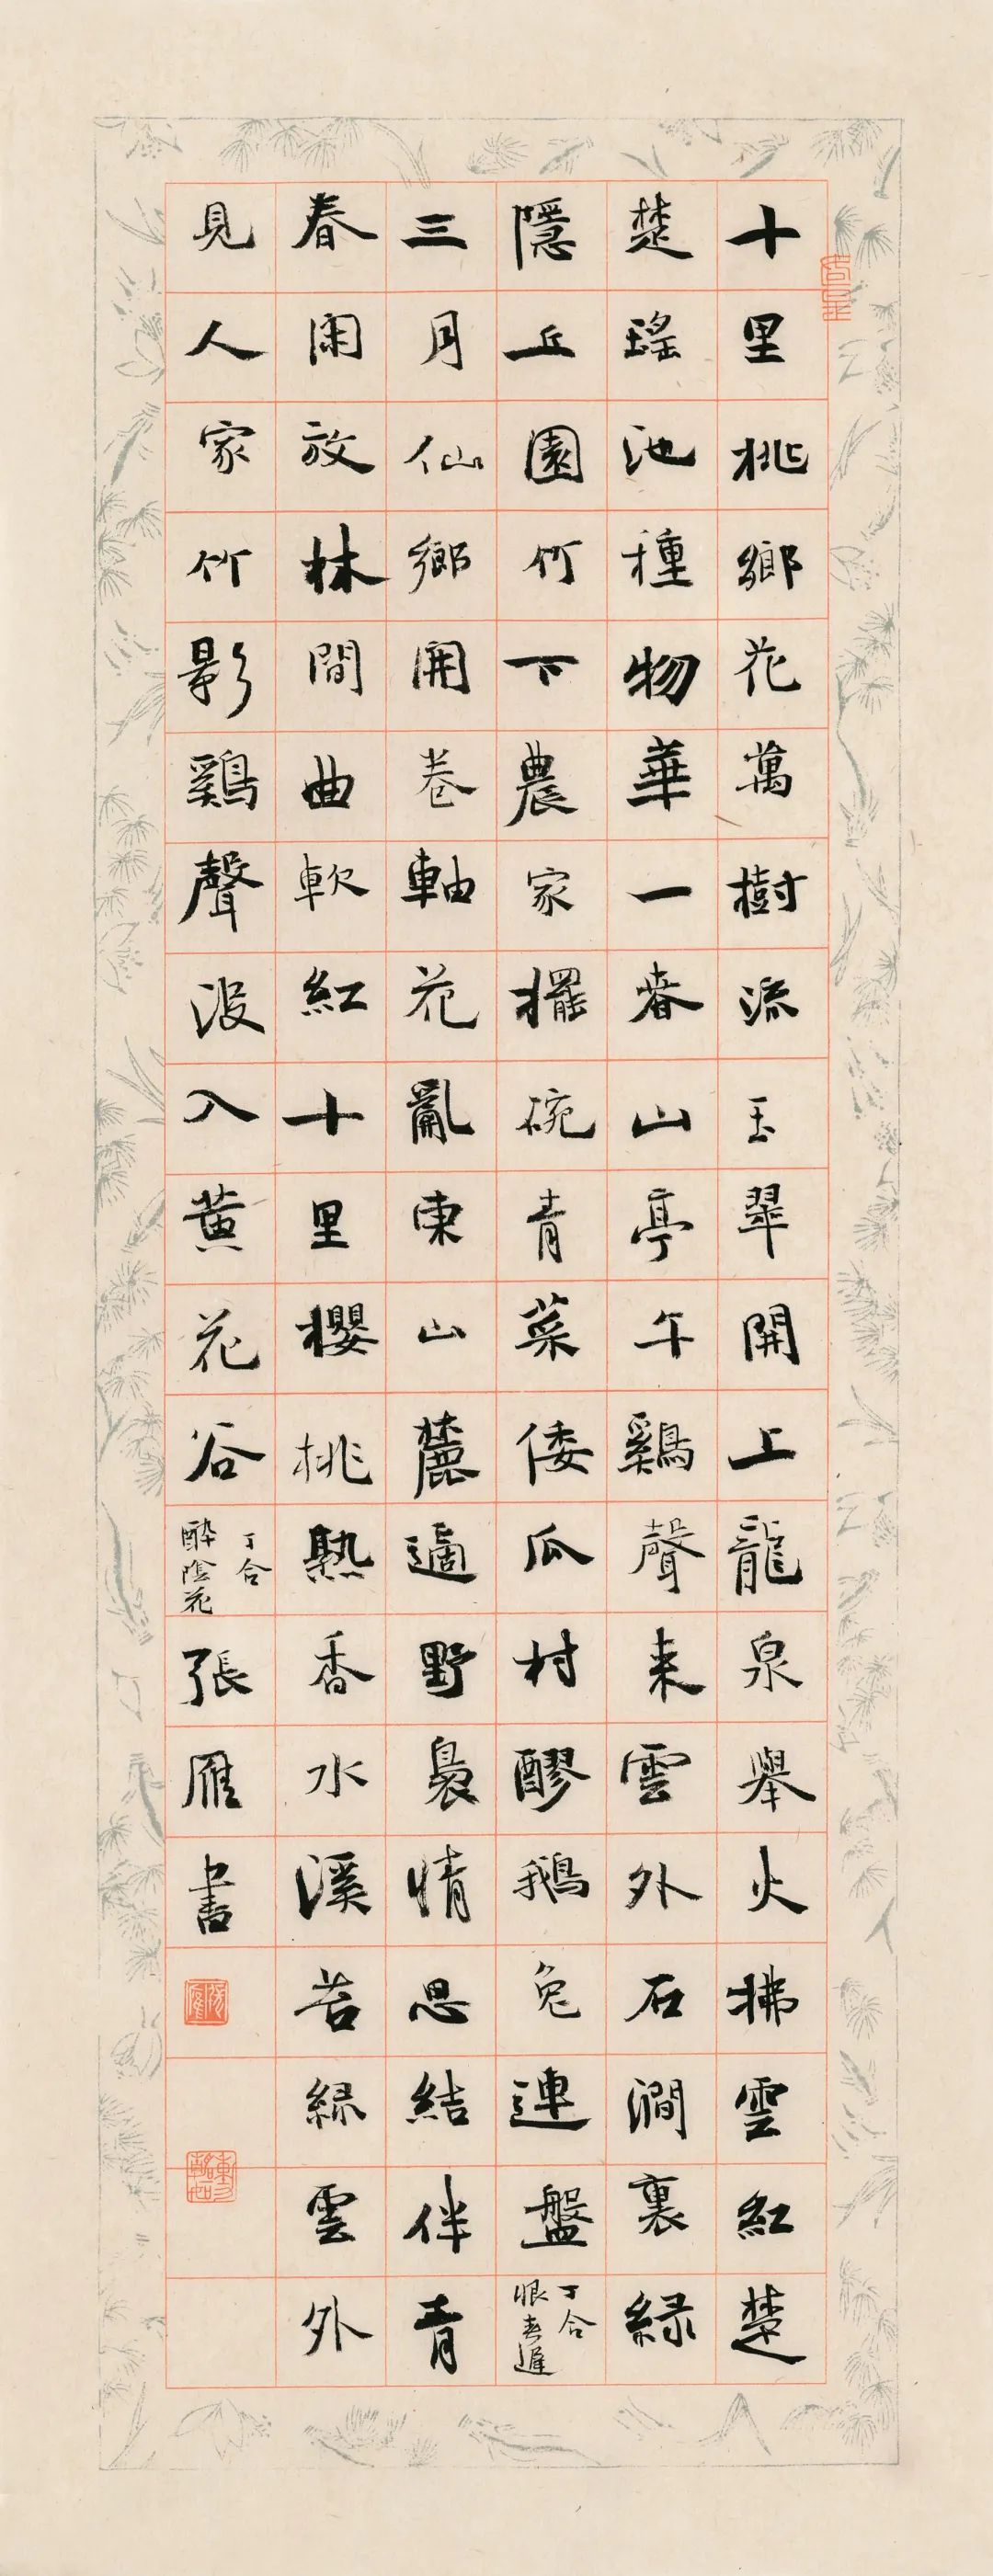 十里桃鄉花萬樹流玉翠開上龍泉舉火拂雲紅楚
楚瑤池種物華一春山亭午鷄聲来雲外石澗裏緑
隱丘園竹下農家擺碗青菜倭瓜村醪鵝兔連盤丁合恨春遲
三月仙鄉開卷軸花亂東山麓適野裊情思結伴青
春閑放林間曲軟紅十里櫻桃熟香水溪苔緑雲外
見人家竹影鷄聲没入黄花谷丁合醉陰花張雁書